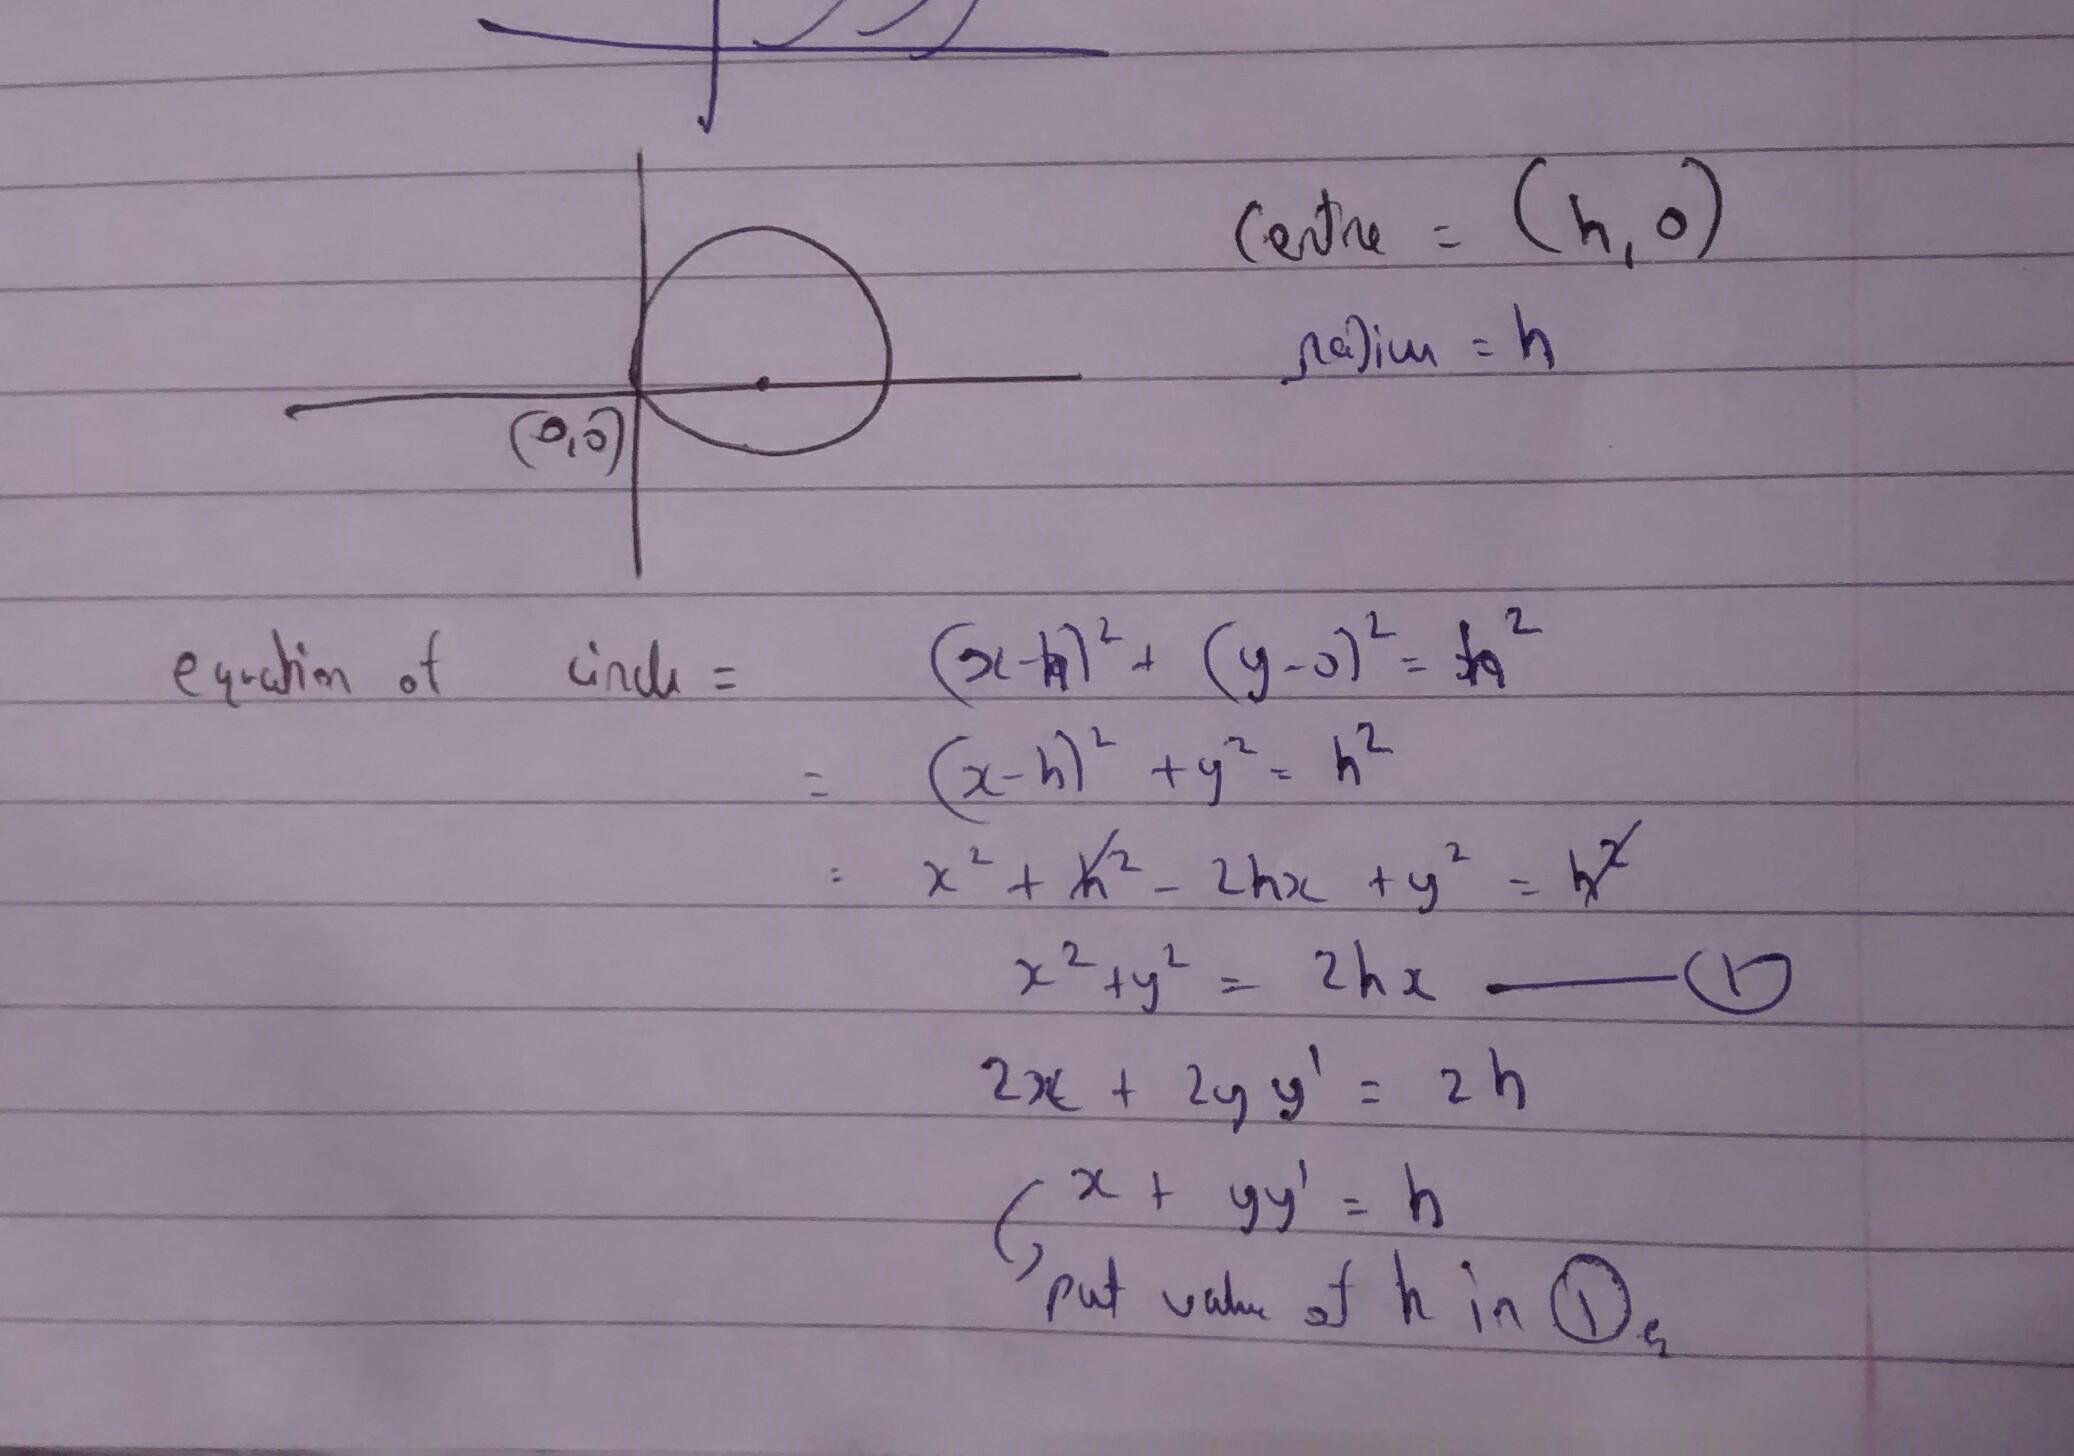 Centre = (h, 0)
radius = h
(0,0)
equation of circle = (x-h)² + (y-0)² = h²
= (x-h)² + y² = h²
= x² + h² - 2hx + y² = h²
x² + y² = 2hx — ①
2x + 2yy' = 2h
x + yy' = h
put value of h in ①